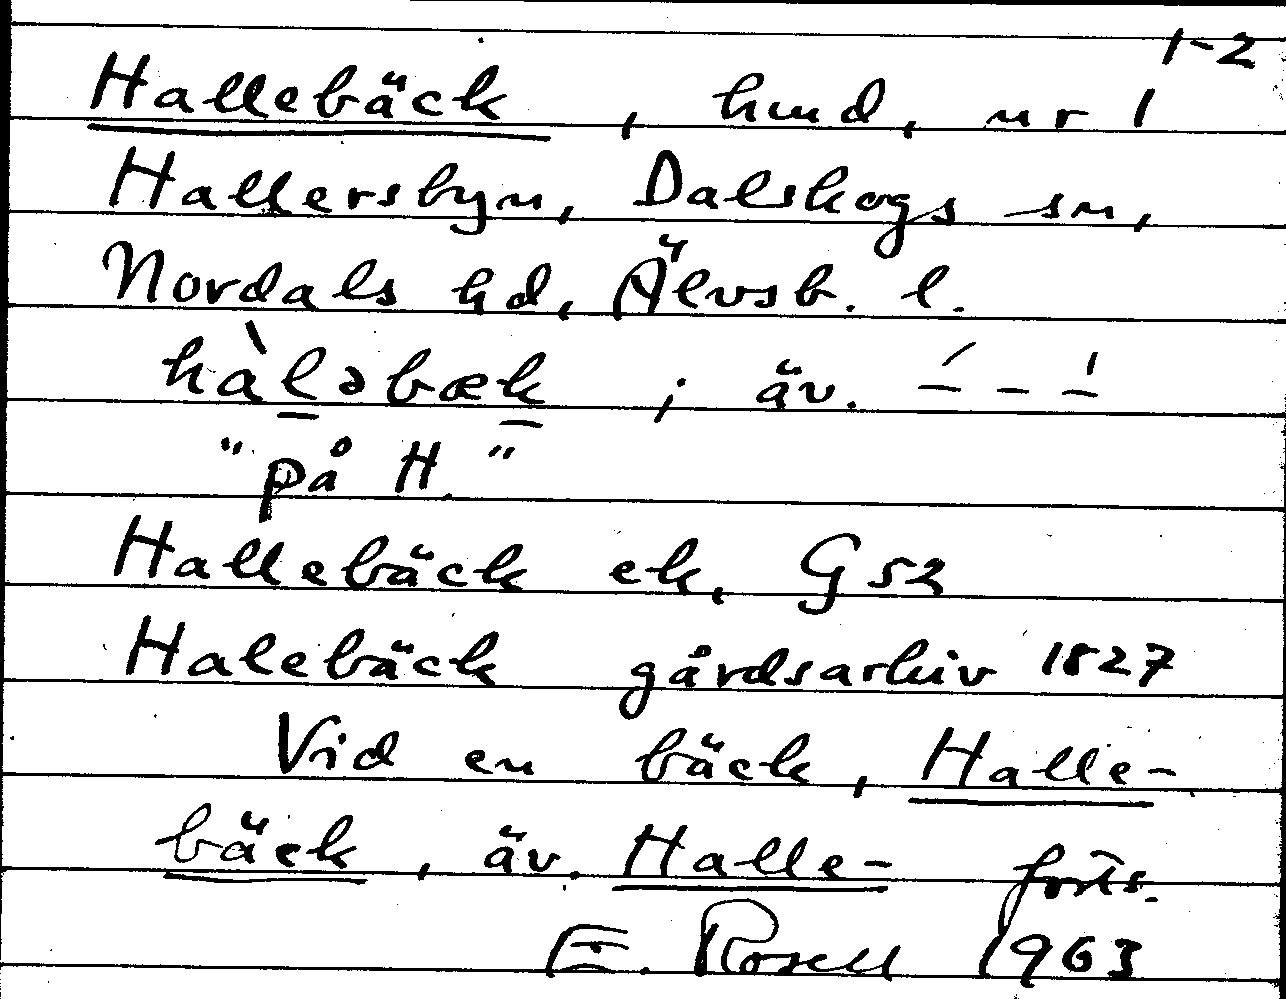 1-2
Hallebäck, hmd, nr 1
Hallersbyn, Dalskogs sn,
Nordals hd, Älvsb. l.
hàləbæk ; äv. –́ – –̍
"på H."
Hallebäck ek, GS2
Halebäck gårdsarkiv 1827
Vid en bäck, Halle-
bäck, äv. Halle- forts.
E. Rosell 1963